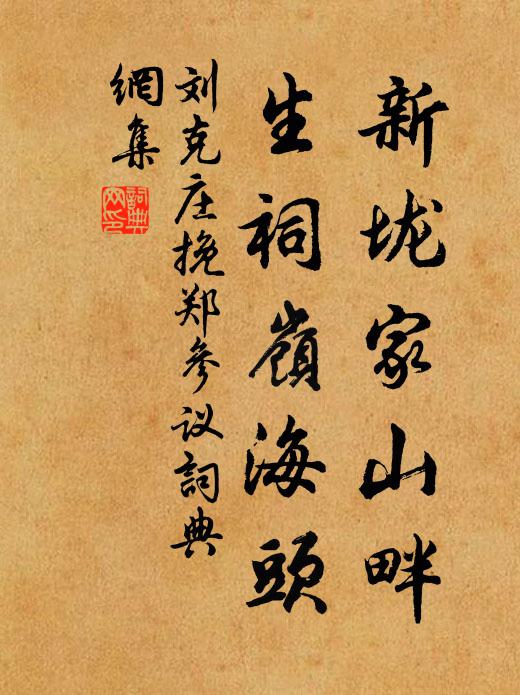 新垅家山畔
生祠嶺海頭
刘克庄挽郑参议詞典
網集
詞典
网印